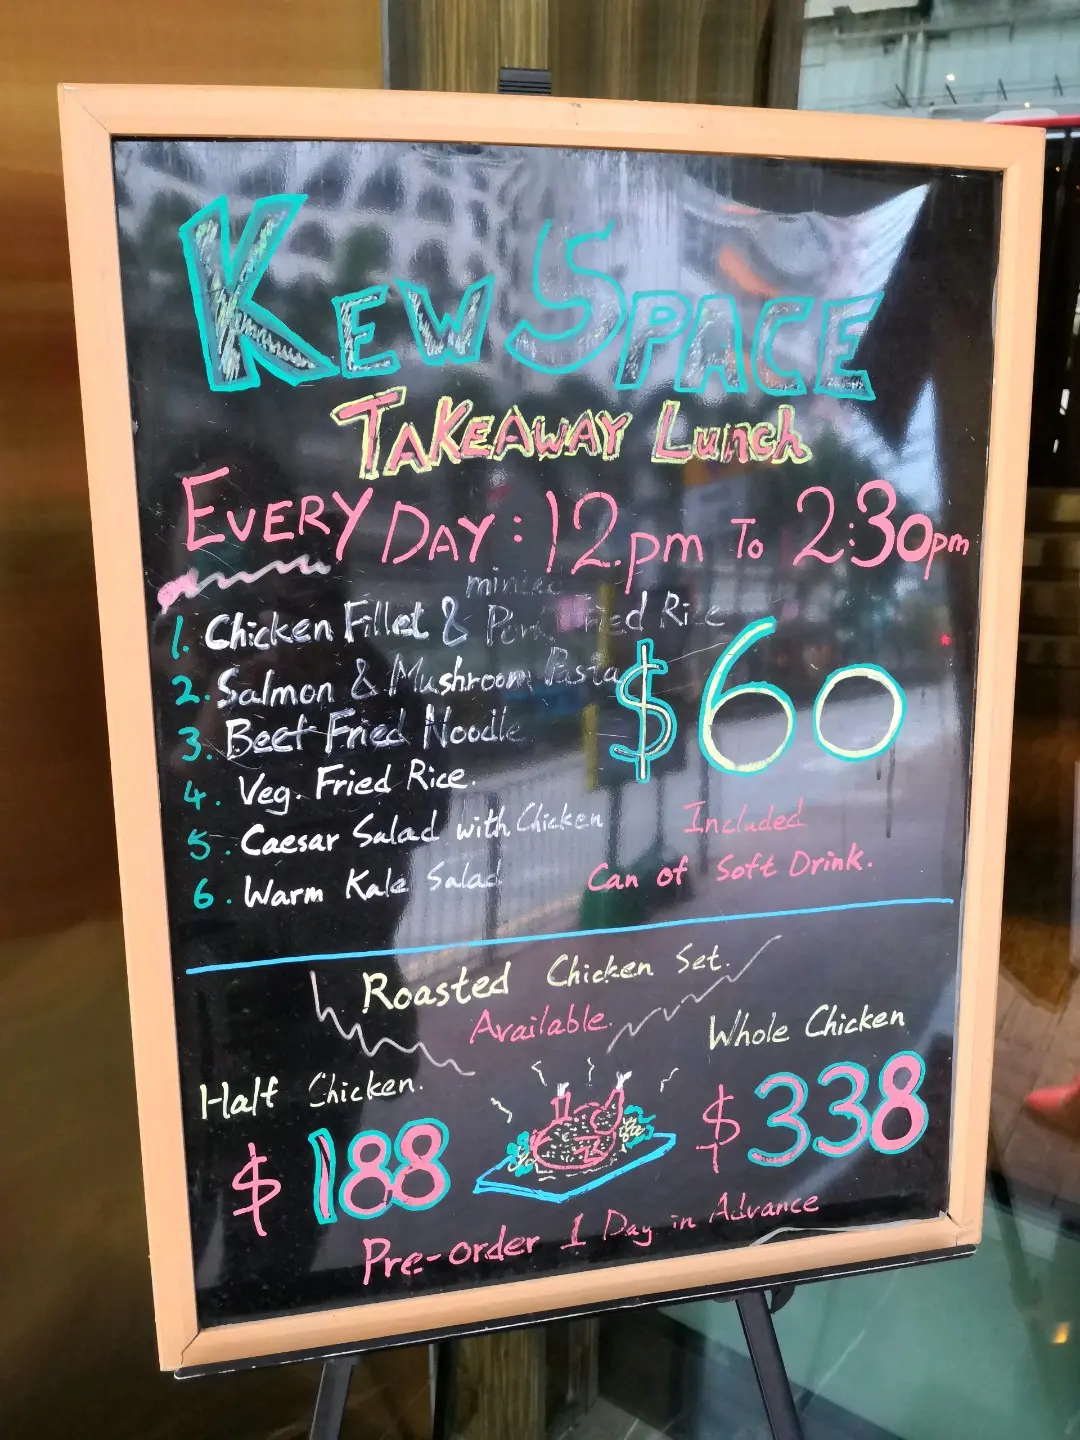 KEW SPACE
TAKEAWAY Lunch
EVERY DAY: 12.pm To 2:30pm
minced
1. Chicken Fillet & Pork Fried Rice
2. Salmon & Mushroom Pasta
3. Beef Fried Noodle
4. Veg. Fried Rice.
5. Caesar Salad with Chicken
6. Warm Kale Salad
$60
Included
Can of Soft Drink.
Roasted Chicken Set.
Available.
Half Chicken.
$188
Whole Chicken
$338
Pre-order 1 Day in Advance